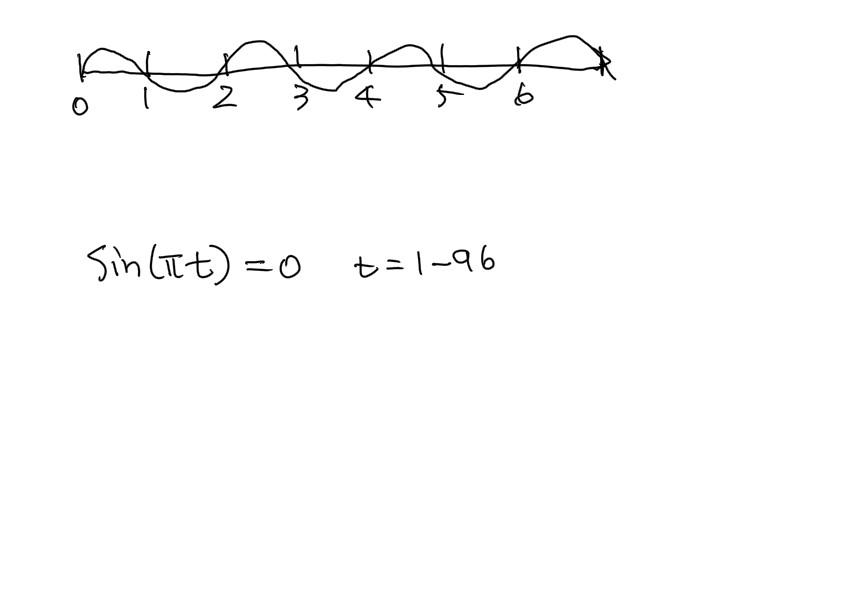 0 1 2 3 4 5 6
Sin(πt)=0 t=1-96